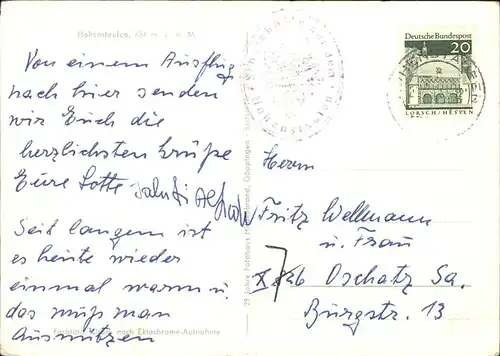 Hohenstaufen, 684 m ü. n. M.
Von einem Ausflug
nach hier senden
wir Euch die
herzlichsten Grüße
Eure Lotte
Seit langem ist
es heute wieder
einmal warm u.
das muß man
ausnützen
nach Ektachrome-Aufnahme
75 Jahre Fotohaus Hildenbrand, Göppingen
Deutsche Bundespost
20
LORSCH/HESSEN
Herrn
Fritz Wellmann
u. Frau
X 726 Oschatz Sa.
Burgstr. 13